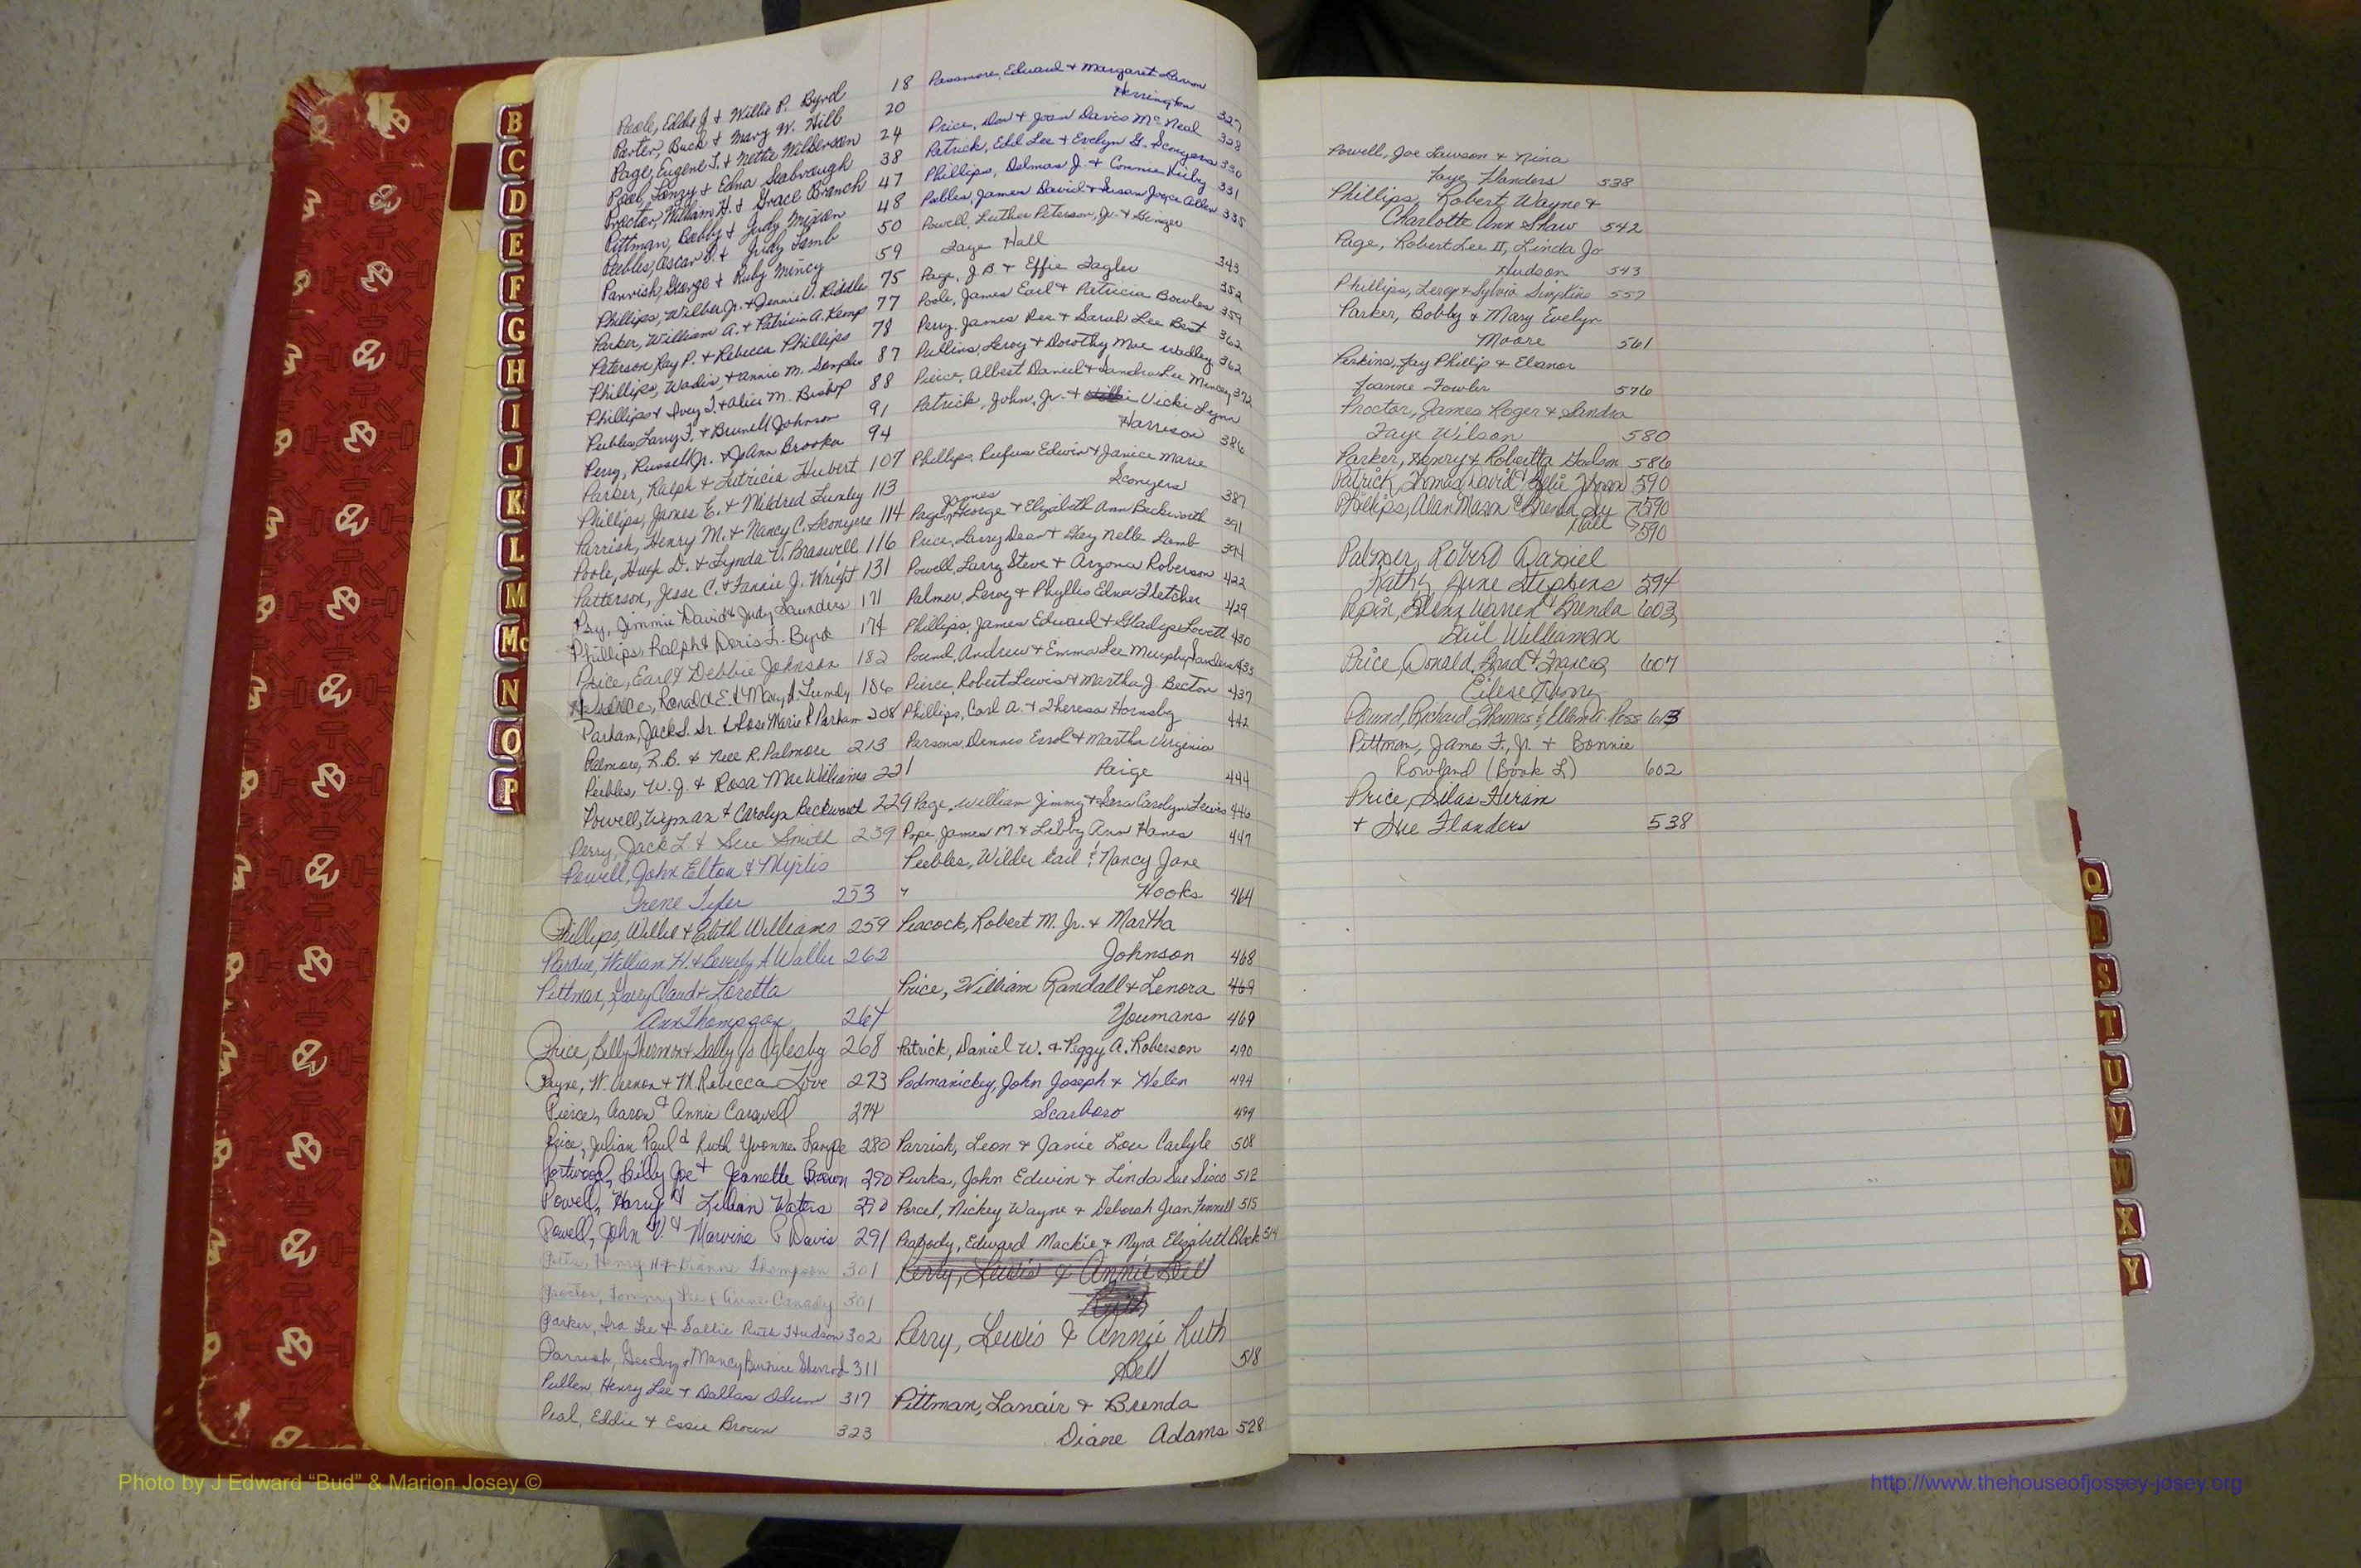 B
C
D
E
F
G
H
I
J
K
L
M
Mc
N
O
P
Poole, Eddie J + Willie P. Byrd 18
Porter, Buck + Mary W. Hill 20
Page, Eugene T. + Nettie Wilkerson 24
Pool, Lonzy + Edna Seabrough 38
Proctor, William H. + Grace Branch 47
Pittman, Bobby + Judy Mixon 48
Peebles, Oscar D. + Judy Lamb 50
Parrish, George + Ruby Mincy 59
Phillips, Wilber Jr. + Jennie V. Riddle 75
Parker, William A. + Patricia A. Kemp 77
Peterson, Ray P. + Rebecca Phillips 78
Phillips, Wadis, + Annie M. Samples 87
Phillips + Ivey T. + Alice M. Bishop 88
Peebles, Larry F. + Brunell Johnson 91
Perry, Russell Jr. + JoAnn Brooks 94
Parker, Ralph + Lutricia Hubert 107
Phillips, James E. + Mildred Lumley 113
Parrish, Henry M. + Nancy C. Sconyers 114
Poole, Hugh D. + Lynda V. Braswell 116
Patterson, Jesse C. + Fannie J. Wright 131
Jimmie David + Judy Saunders 171
Phillips, Ralph + Doris L. Byrd 174
Price, Earl + Debbie Johnson 182
Ronald E. + Mary A Lundy 186
Parham, Jack S. Sr. + Rose Marie P. Parham 208
Palmore, R.B. + Nell R. Palmore 213
Peebles, W. J. + Rosa Mae Williams 221
Powell, Wyman + Carolyn Beckworth 229
Perry, Jack L. + Sue Smith 239
Powell, John Elton + Myrtis
Irene Tyler 253
Phillips, Willie + Edith Williams 259
Pardue, William H. + Beverly A Waller 262
Pittman, Harry Claud + Loretta
Ann Thompson 264
Price, Billy Thermon + Sally Jo Oglesby 268
Payne, W. Vernon + M. Rebecca Love 273
Pierce, Aaron & Annie Carwell 274
Price, Julian Paul & Ruth Yvonne 280
Portwood, Billy Joe + Jeanette Brown 290
Powell, Harry & Lillian Waters 290
Powell, John V. & Marvine P Davis 291
Henry H + Dianne Thompson 301
Proctor, Tommy Lee & Anne Canady 301
Parker, Ira Lee + Sallie Ruth Hudson 302
Parrish, Geo Ivy + Nancy Burnice Sherrod 311
Pullen, Henry Lee + Dallas Odum 317
Peal, Eddie + Essie Brown 323
Passmore, Edward + Margaret
Herrington 327
Price, Don + Joan Davis McNeal 328
Patrick, Edd Lee + Evelyn G. Sconyers 330
Phillips, Delmas J. + Connie Kirby 331
Peebles, James David + Susan Joyce Allen 335
Powell, Luther Peterson, Jr. + Ginger
Faye Hall 343
Page, J.B. + Effie Fagler 352
Poole, James Earl + Patricia Bowles 359
Perry, James Ree + Sarah Lee Best 362
Pullins, Leroy + Dorothy Mae Wadley 362
Pierce, Albert Daniel + Sandra Lee Mincey 372
Patrick, John, Jr. + Vicki Lynn
Harrison 386
Phillips, Rufus Edwin + Janice Marie
Sconyers 387
James
Page, George + Elizabeth Ann Beckworth 391
Price, Larry Dean + Gay Nelle Lamb 394
Powell, Larry Steve + Arzona Roberson 422
Palmer, Leroy + Phyllis Edna Fletcher 429
Phillips, James Edward + Gladys Lovett 430
Pound, Andrew + Emma Lee Murphy Sanders 435
Pierce, Robert Lewis + Martha J. Becton 437
Phillips, Carl A. + Theresa Hornsby 442
Parsons, Dennis Errol + Martha Virginia
Paige 444
Page, William Jimmy + Sara Carolyn Lewis 446
Pope, James M + Libby Ann Hanes 447
Peebles, Wilder Earl & Nancy Jane
Hooks 464
Peacock, Robert M. Jr. + Martha
Johnson 468
Price, William Randall + Lenora 469
Youmans 469
Patrick, Daniel W. + Peggy A. Roberson 490
Podmanickey, John Joseph + Helen 494
Scarboro 494
Parrish, Leon + Janie Lou Carlyle 508
Purks, John Edwin + Linda Sue Sisco 512
Porcel, Nickey Wayne + Deborah Jean Fennell 515
Peabody, Edward Mackie + Myra Elizabeth Block 514
Perry, Lewis & Annie Dell
Ruth
Perry, Lewis & Annie Ruth
Dell 518
Pittman, Lanair + Brenda
Diane Adams 528
Powell, Joe Lawson + Nina
Faye Flanders 538
Phillips, Robert Wayne +
Charlotte Ann Shaw 542
Page, Robert Lee II, Linda Jo
Hudson 543
Phillips, Leroy + Sylvia Simpkins 557
Parker, Bobby + Mary Evelyn
Moore 561
Perkins, Jay Phillip + Eleanor
Joanne Fowler 576
Proctor, James Roger + Sandra
Faye Wilson 580
Parker, Henry + Robertta Hudson 586
Patrick, Thomas David & 590
Phillips, Alan Mason & Brenda Sue 590
Hall 590
Palmer, Robert Daniel
Kathy June Stephens 594
Pepin, Glenn Warren & Brenda 603
Gail Williamson
Price, Donald Brad + Frances 607
Eilene
Pound, Richard Thomas & Ross 613
Pittman, James F., Jr. + Bonnie
Rowland (Book L) 602
Price, Silas Hiram
+ Sue Flanders 538
Q
R
S
T
U
V
W
X
Y
Photo by J Edward “Bud” & Marion Josey ©
http://www.thehouseofjossey-josey.org